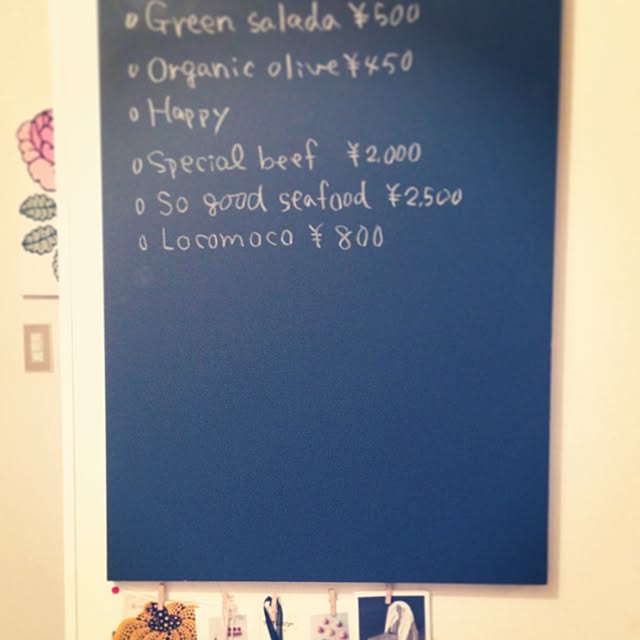 Green salada ¥500
Organic olive ¥450
Happy
Special beef ¥2000
So good seafood ¥2.500
Locomoco ¥800